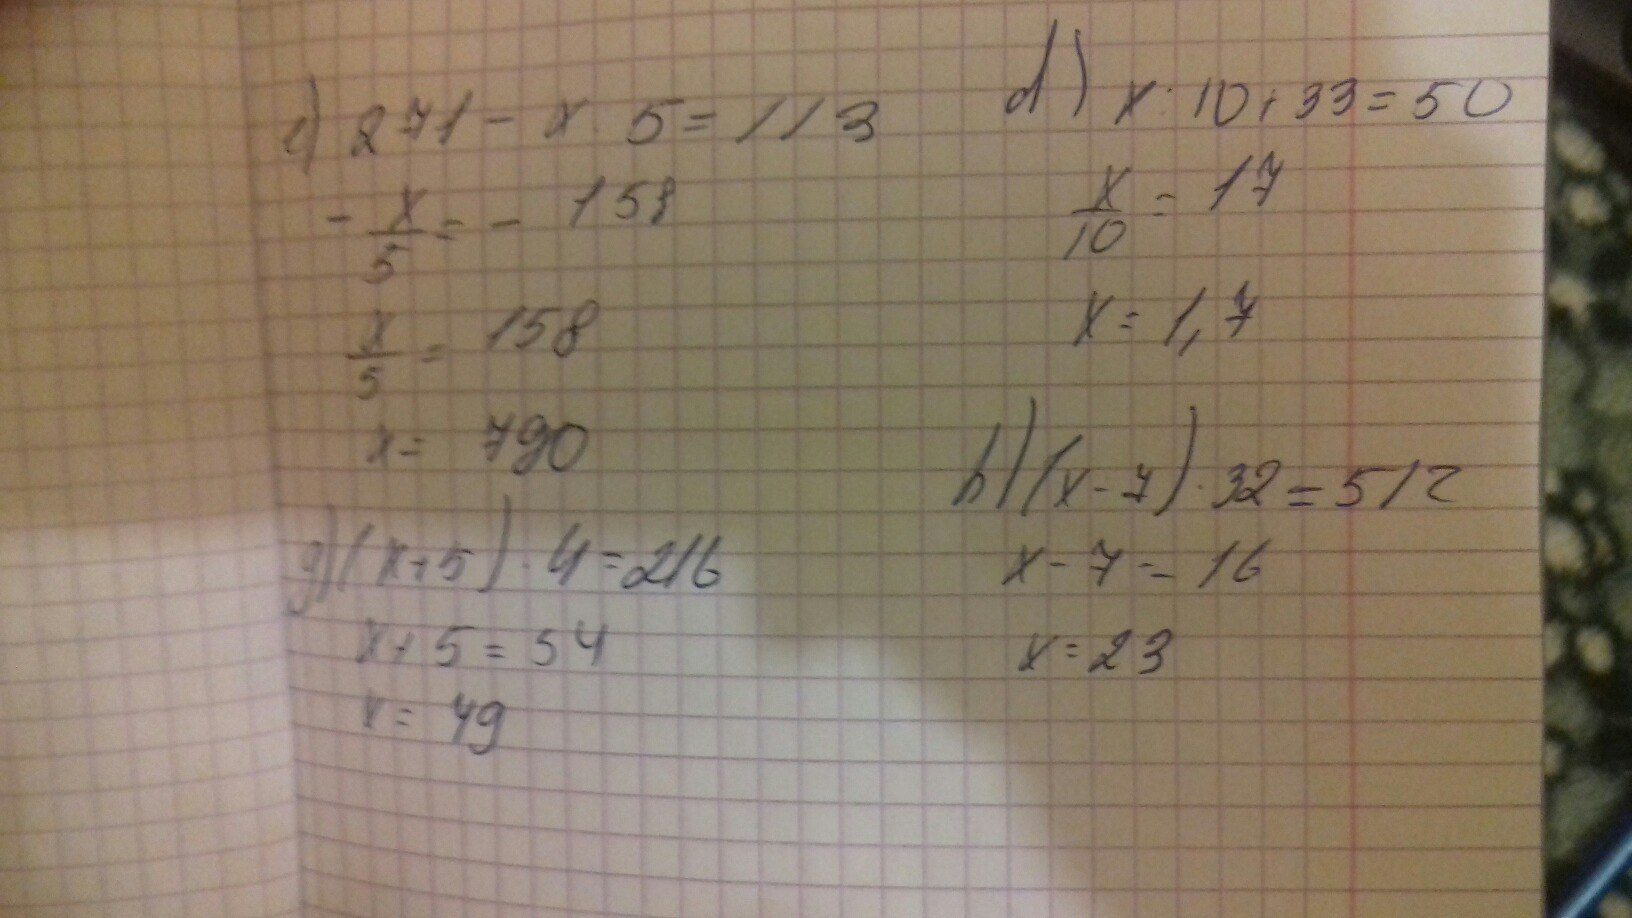 c) 271 - x : 5 = 113
- x/5 = - 158
x/5 = 158
x = 790
g) (x+5) · 4 = 216
x + 5 = 54
x = 49
d) x : 10 + 33 = 50
x/10 = 17
x = 1,7
h) (x - 7) · 32 = 512
x - 7 = 16
x = 23